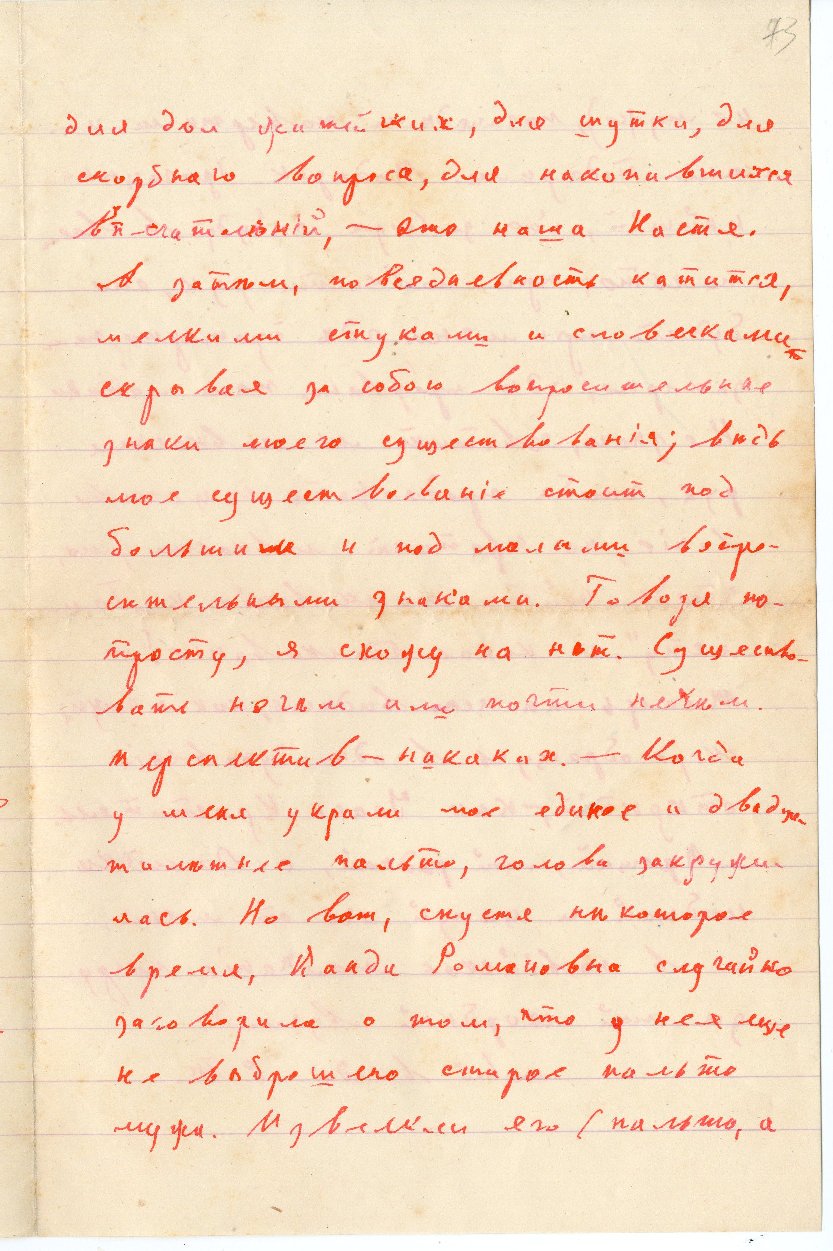 73
для дел житейских, для шутки, для
скорбнаго вопроса, для накопившихся
впечатлѣній, — это наша Настя.
А затѣм, повседневность катится,
мелкими стуками и словечками
скрывая за собою вопросительные
знаки моего существованія; вѣдь
мое существованіе стоит под
большими и под малыми вопро-
сительными знаками. Говоря по-
просту, я схожу на нѣт. Существо-
вать нечѣм или почти нечѣм.
Перспектив — никаких. — Когда
у меня украли мое единое и двадца-
тилѣтнее пальто, голова закружи-
лась. Но вот, спустя нѣкоторое
время, Романовна случайно
заговорила о том, что у нея еще
не выброшено старое пальто
мужа. Извлекли его (пальто, а